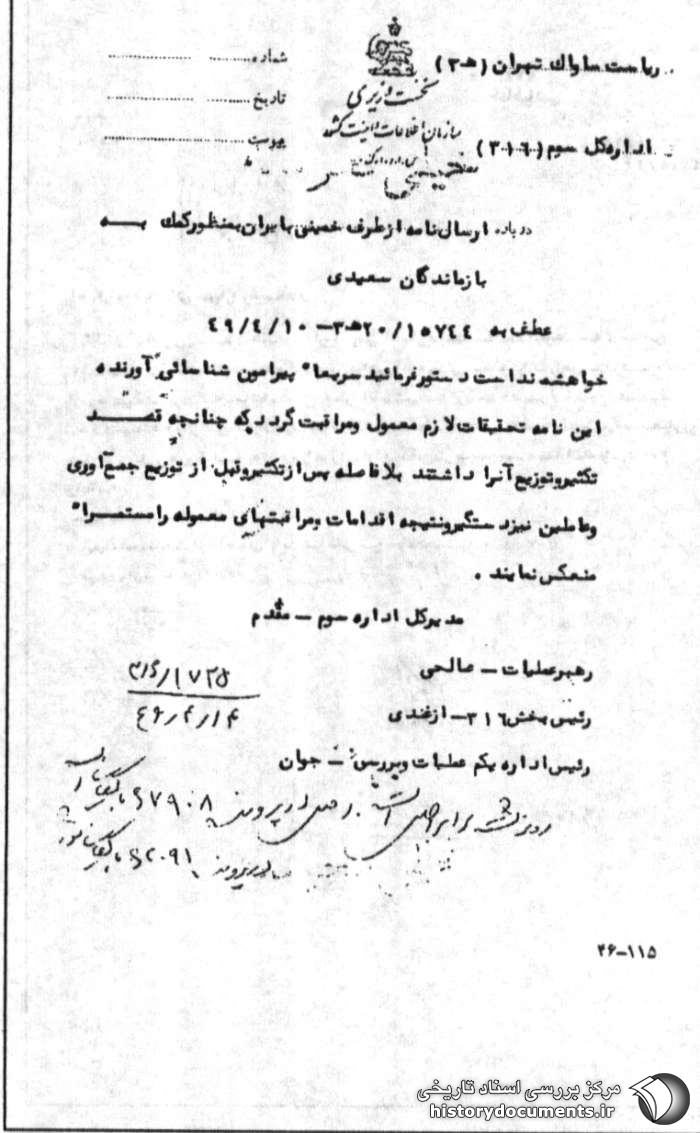 ریاست ساواک تهران (ه‍ ۳)
شماره
نخست وزیری
تاریخ
سازمان اطلاعات و امنیت کشور
اداره کل سوم (۳۱۶)
پیوست
درباره ارسال نامه از طرف خمینی بایران بمنظور کمک به
بازماندگان سعیدی
عطف به ۱۵۷۴۴/۲۰ه‍ ۳ــ ۴۹/۴/۱۰
خواهشمند است دستور فرمائید سریعا" پیرامون شناسائی آورنده
این نامه تحقیقات لازم معمول ومراقبت گردد که چنانچه قصد
تکثیر وتوزیع آنرا داشتند بلافاصله پس از تکثیر وقبل از توزیع جمع آوری
وعاملین نیز دستگیر ونتیجه اقدامات ومراقبتهای معموله را مستمرا"
منعکس نمایند .
مدیر کل اداره سوم ــ مقدم
رهبر عملیات ــ صالحی
۳۱۶/۱۷۳۵
رئیس بخش ۳۱۶ــ ازغندی
۴۹/۴/۱۴
رئیس اداره یکم عملیات وبررسی ــ جوان
رونوشت برابر اصل است . اصل در پرونده ۶۷۹۰۸
در پرونده
۴۶-۱۱۵
مرکز بررسی اسناد تاریخی
historydocuments.ir